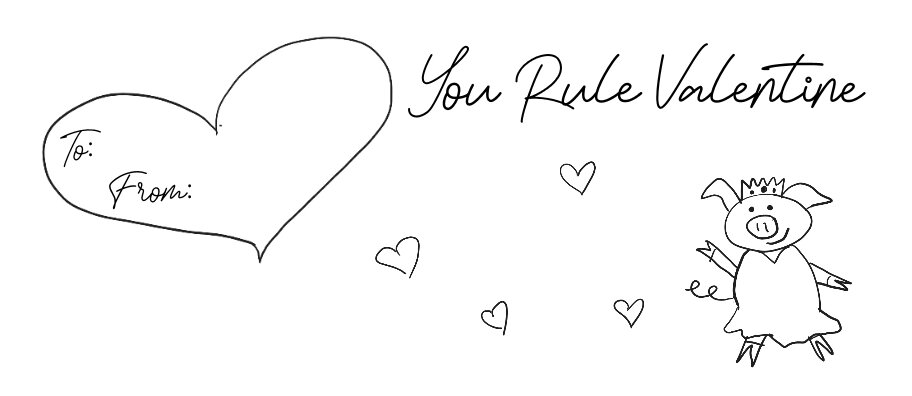 You Rule Valentine
To:
From: